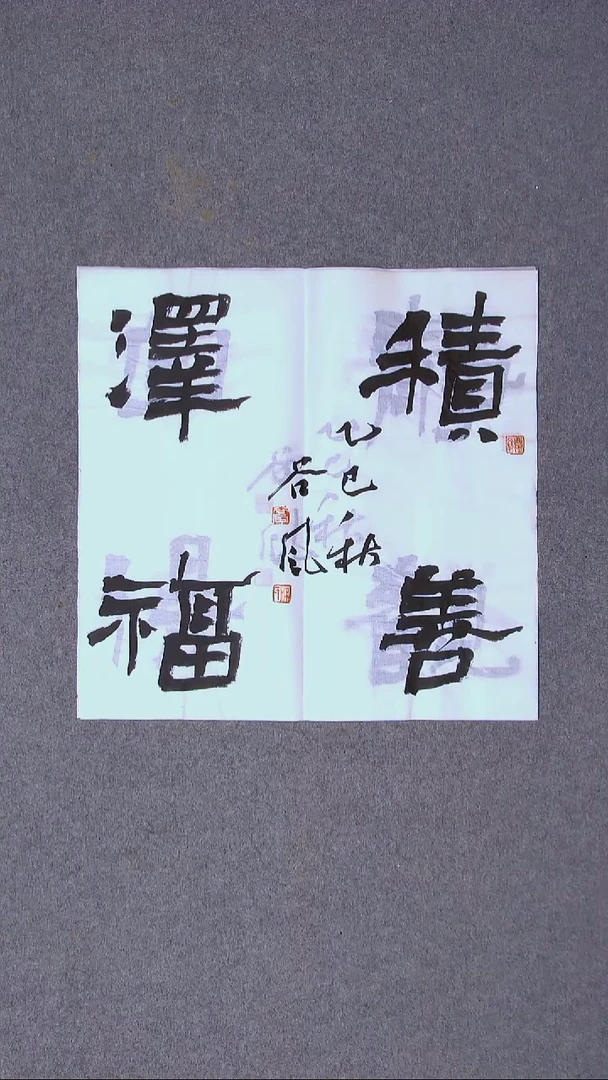 積善
澤福
乙巳秋
谷風